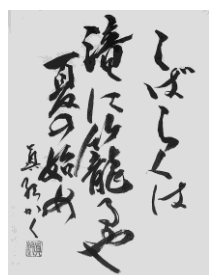 しばらくは
滝に籠るや
夏の始め
真Ⅱかく